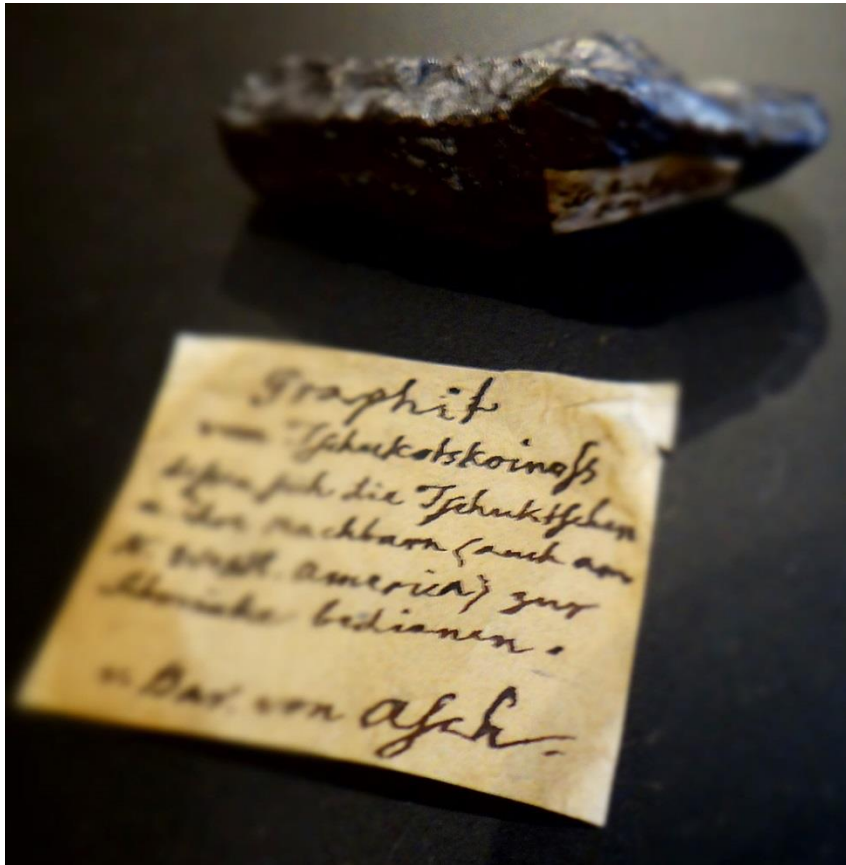 Graphit
vom Tschukotskoinoss
dessen sich die Tschuktschen
u. ihre nachbarn (auch am
N. westl. america) zur
Schminke bedienen.
v. Bar. von Asch.